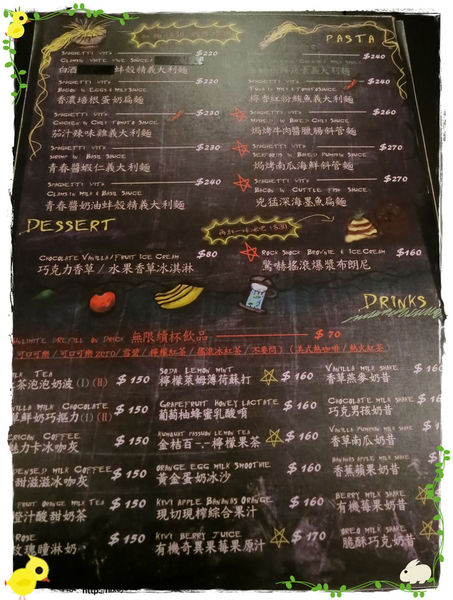 PASTA
SPAGHETTI WITH
CLAMS WHITE WINE SAUCE
$220
白酒 蛤蠣精義大利麵
SPAGHETTI WITH
BACON & EGGS MILKY SAUCE
$200
香濃培根蛋奶扁麵
SPAGHETTI WITH
CHICKEN W CHILI TOMATO SAUCE
$200
茄汁辣味雞義大利麵
SPAGHETTI WITH
SHRIMP W BASIL SAUCE
$230
青春醬蝦仁義大利麵
SPAGHETTI WITH
CLAMS IN MILK & BASIL SAUCE
$240
青春醬奶油蛤殼精義大利麵
$240
義大利麵
SPAGHETTI WITH
$240
檸香紅粉鮪魚義大利麵
SPAGHETTI WITH
$260
焗烤牛肉醬臘腸斜管麵
SPAGHETTI WITH
SEAFOODS W BAKED PUMPKIN SAUCE
$270
焗烤南瓜海鮮斜管麵
SPAGHETTI WITH
BACON W CUTTLE FISH SAUCE
$270
兇猛深海墨魚扁麵
DESSERT
CHOCOLATE VANILLA/FRUIT ICE CREAM
$80
巧克力香草 / 水果香草冰淇淋
ROCK SHOCK BROWNIE & ICE CREAM
$160
驚赫搖滾爆漿布朗尼
DRINKS
無限續杯飲品
$70
可口可樂 / 可口可樂 zero / 雪碧 / 檸檬紅茶 / 搖滾冰紅茶 / 不要問 ) ( 美式熱咖啡 / 熱火紅茶 )
MILK TEA
$150
茶泡泡奶波 (I) (II)
VANILLA MILK CHOCOLATE
$150
草鮮奶巧摳力 (I) (II)
AMERICAN COFFEE
$150
魅力卡冰咖灰
CONDENSED MILK COFFEE
$150
甜滋滋冰咖灰
FRUIT ORANGE MILK TEA
$150
橙汁酸甜奶茶
ROSE
$150
玫瑰瞳淋奶
SODA LEMON MINT
$160
檸檬萊姆薄荷蘇打
GRAPEFRUIT HONEY LACTATE
$160
葡萄柚蜂蜜乳酸唷
KUMQUAT PASSION LEMON TEA
$160
金桔百-.-檸檬果茶
ORANGE EGG MILK SMOOTHIE
$160
黃金蛋奶冰沙
KIVI APPLE BANANAS ORANGE
$160
現切現榨綜合果汁
KIVI BERRY JUICE
$170
有機奇異果莓果原汁
VANILLA MILK SHAKE
香草燕麥奶昔
CHOCOLATE MILK SHAKE
巧克男孩奶昔
VANILLA PUMPKIN MILK SHAKE
香草南瓜奶昔
BANANAS APPLE MILK SHAKE
香蕉蘋果奶昔
BERRY MILK SHAKE
有機莓果奶昔
OREO MILK SHAKE
脆酥巧克奶昔